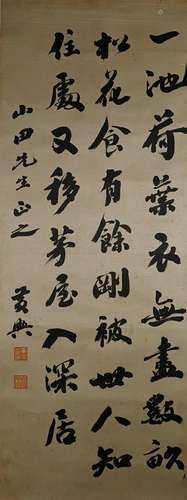 一池荷葉衣無盡數畝
松花食有餘剛被世人知
住處又移茅屋入深居
山田先生正之
黃興